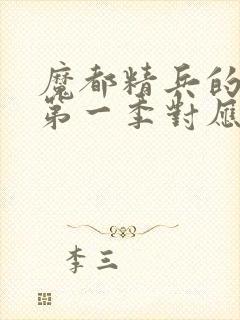 魔都精兵的
第一季對應
李三